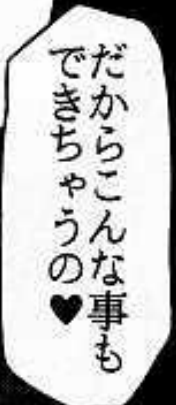 だからこんな事も
できちゃうの♥